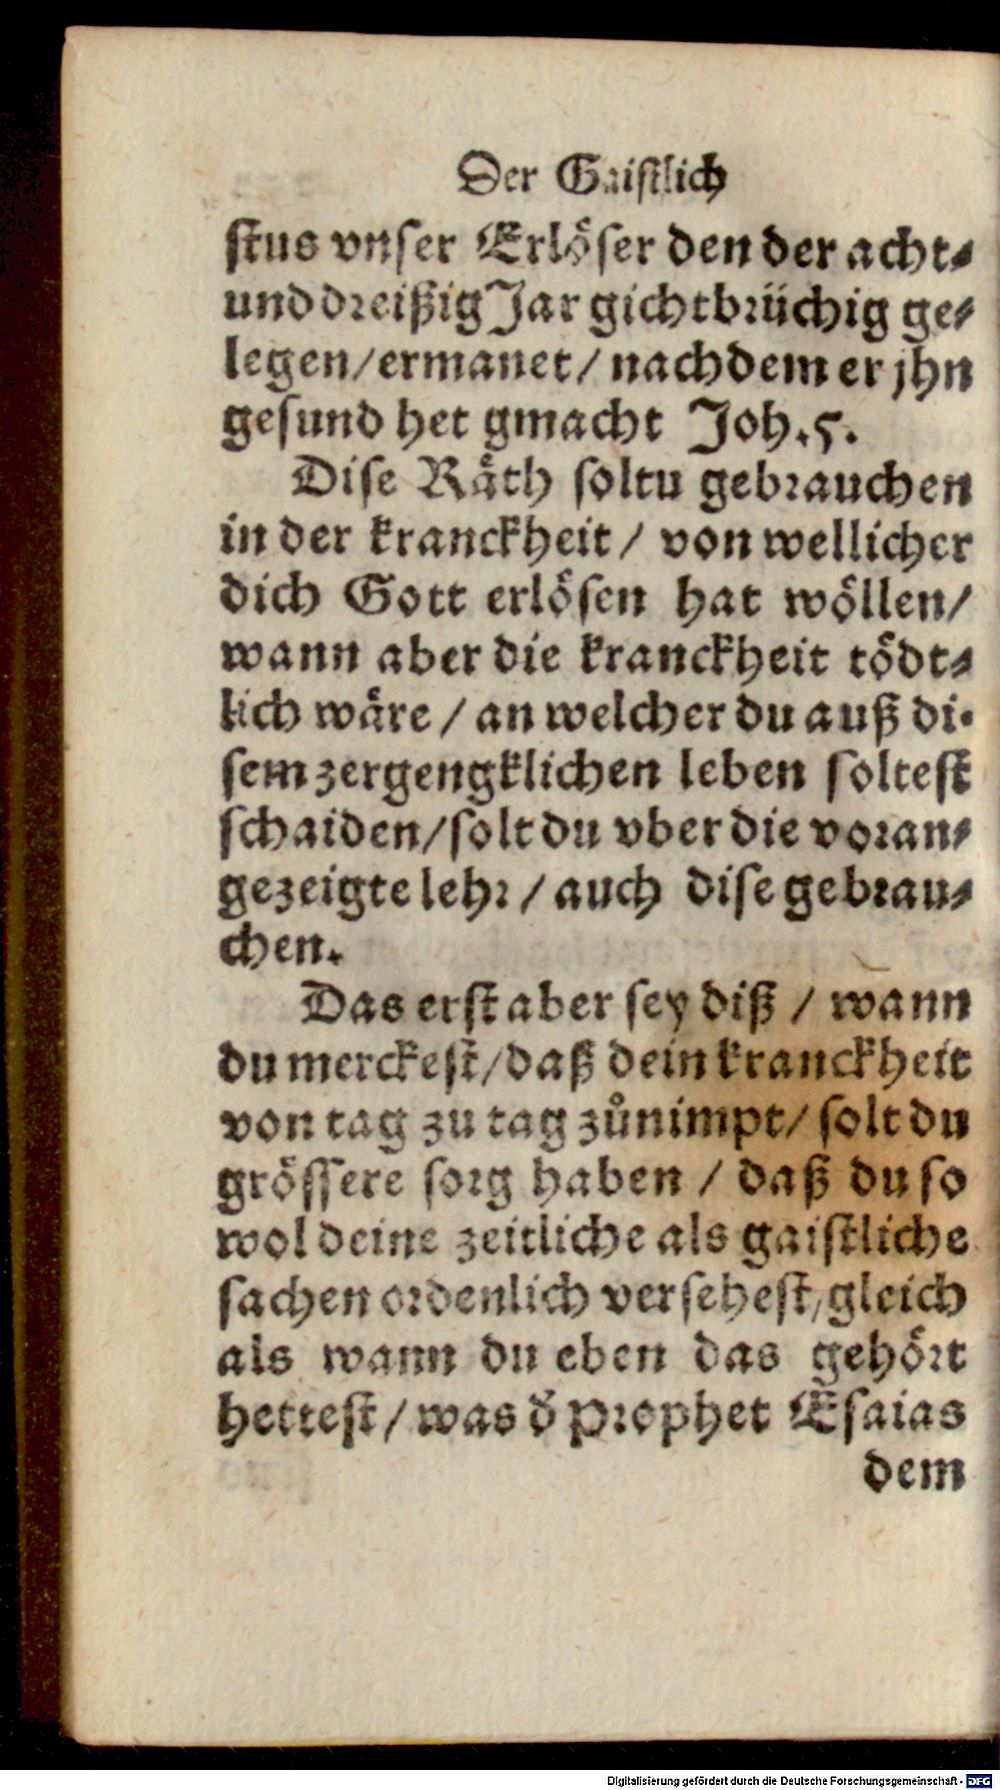 Der Gaistlich
stus vnser Erlöser den der acht-
und dreißig Jar gichtbrüchig ge-
legen/ermanet/ nachdem er jhn
gesund het gmacht Joh. 5.
Dise Räth soltu gebrauchen
in der kranckheit / von wellicher
dich Gott erlösen hat wöllen/
wann aber die kranckheit tödt-
lich wäre / an welcher du auß di-
sem zergengklichen leben soltest
schaiden/solt du vber die voran-
gezeigte lehr / auch dise gebrau-
chen.
Das erst aber sey diß / wann
du merckest/daß dein kranckheit
von tag zu tag zůnimpt/ solt du
grössere sorg haben / daß du so
wol deine zeitliche als gaistliche
sachen ordenlich versehest/gleich
als wann du eben das gehört
hettest / was d̕ Prophet Esaias
dem
Digitalisierung gefördert durch die Deutsche Forschungsgemeinschaft - DFG